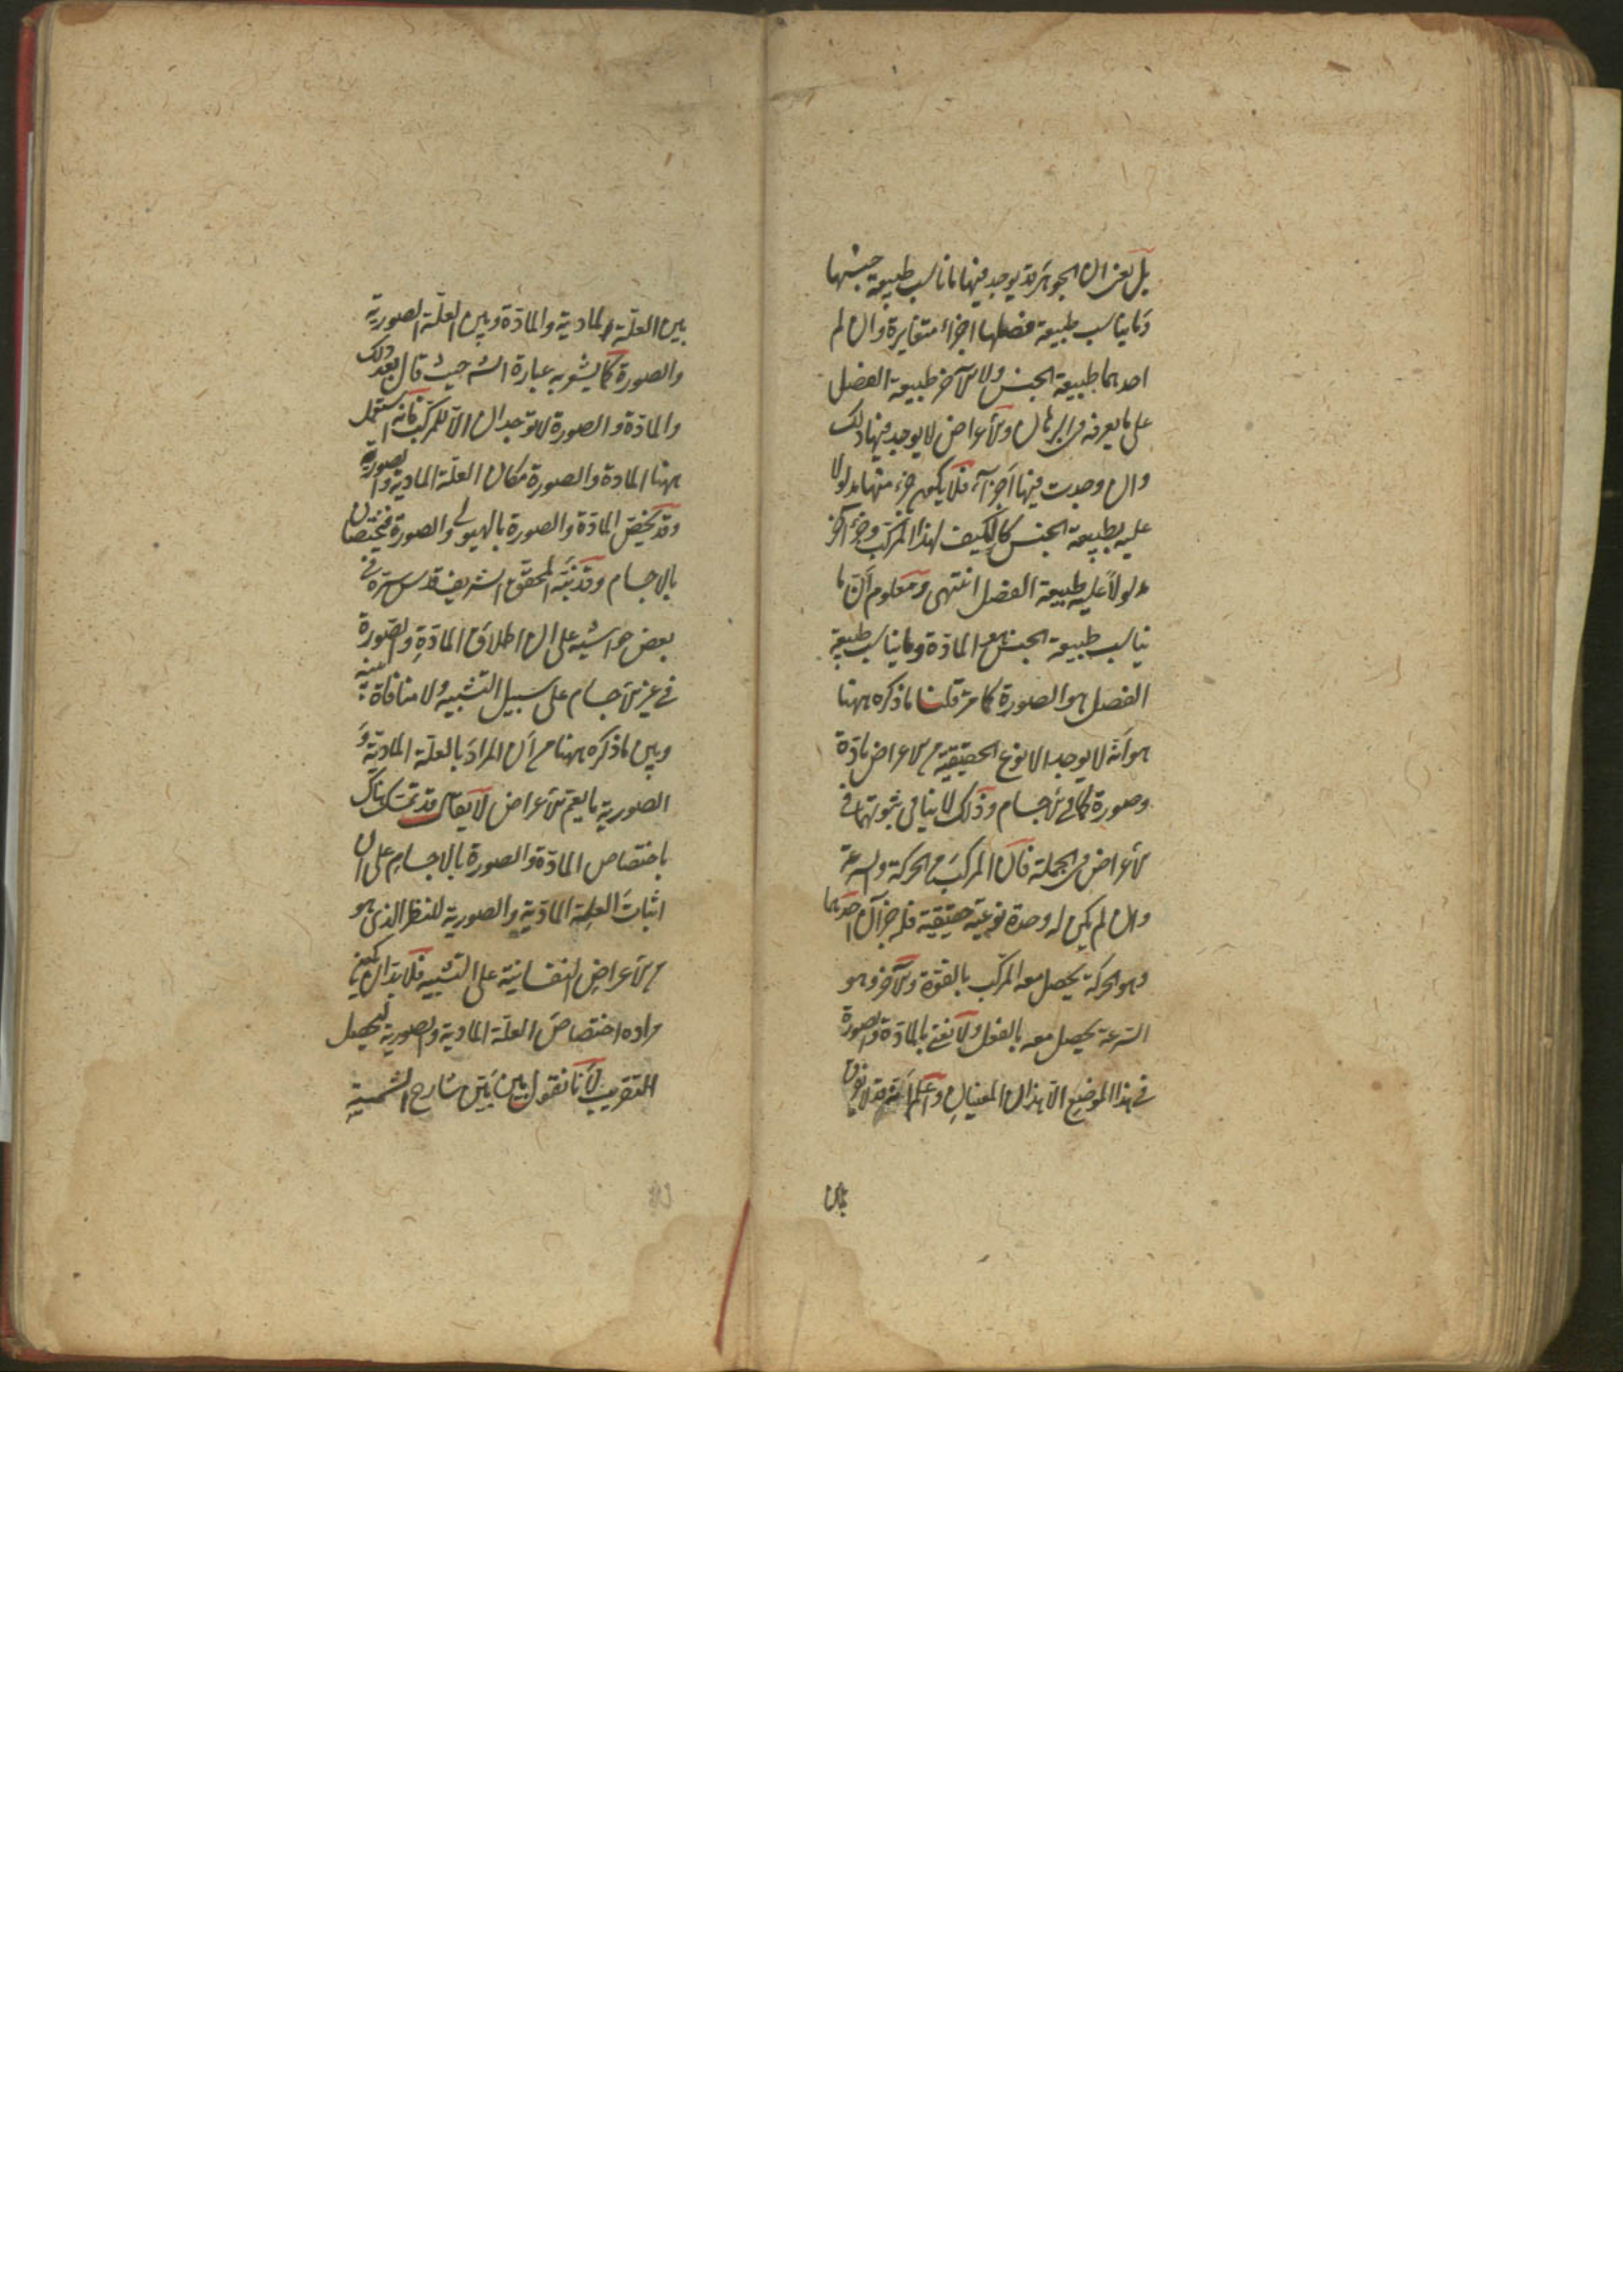 بل يعنى ان الجوهر قد يوجد فيها ما يناسب طبيعة جنسها
وما يناسب طبيعة فصلها اجزاء متغايرة وان لم
احدهما طبيعة الجنس ولا الآخر طبيعة الفصل
على ما يعرف فى البرهان والأعراض لا يوجد فيها ذلك
وان وجدت فيها اجزآء فلا يكون جزء منها مدلولا
عليه بطبيعة الجنس كالكيف لهذا المركب وجزء آخر
مدلولاً عليه طبيعة الفصل انتهى ومعلوم أنّ ما
يناسب طبيعة الجنس هو المادّة وما يناسب طبيعة
الفصل هو الصورة كما مرّ قلنا ما ذكره ههنا
هو أنّه لا يوجد الانوع الحقيقيّة من الاعراض مادّة
وصورة كما فى الأجسام وذلك لا ينافى ثبوتهما فى
الأعراض فى الجملة فانّ المركبَ من الحركة والسرعة
وان لم يكن له وحدة نوعيّة حقيقية فله جزآن احدهما
وهو الحركة يحصل معه المركب بالقوّة والآخر وهو
السّرعة يحصل معه بالفعل ولا نعنى بالمادّة والصورة
فى هذا الموضع الّا هذان المعنيانِ واعلم أنّه قد لا يفرّق
بين
بين العلّة المادية والمادّة وبين العلّة الصوريّة
والصورة كما يشعر به عبارة الشـ حيث قال بعد ذلك
والمادّة والصورة لا توجدان الّا للمركّب فانّه استعمل
ههنا المادة والصورة مكان العلّة المادية والصورية
وقد يخصّ المادّة والصورة بالهيولى والصورة فيختصّان
بالاجسام وقد نبّه المحقّق الشريف قدس سرّه فى
بعض حواشيه على ان اطلاق المادّةِ والصّورة
فى غير الأجسام على سبيل التشبيه ولا منافاة بينه
وبين ما ذكره ههنا من أن المرادَ بالعلّة الماديّة وَ
الصورية ما يعمّ الأعراض لا يقال قد تمسّك هناك
باختصاص المادّة والصورة بالاجسامِ على ان
اثباتَ العلةِ المادّيةِ والصورية للنظر الذى هو
من الأعراض النفسانيّة على التشبيه فلا بدّ ان يكون
مراده اختصاصَ العلّة المادية والصورية ليحصل
التقريب لأنّا نقول بين بَيّن شارح الشمسيّة